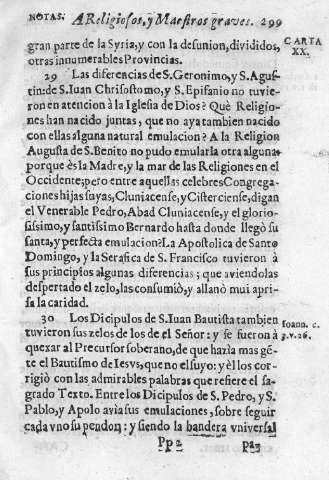 NOTAS. A Religiosos, y Maestros graves. 299
gran parte de la Syria, y con la desunion, divididos, CARTA
otras innumerables Provincias. XX.
29 Las diferencias de S. Geronimo, y S. Agus-
tin: de S. Iuan Chrisostomo, y S. Epifanio no tuvie-
ron en atencion à la Iglesia de Dios? Què Religio-
nes han nacido juntas, que no aya tambien nacido
con ellas alguna natural emulacion? A la Religion
Augusta de S. Benito no pudo emularla otra alguna,
porque ès la Madre, y la mar de las Religiones en el
Occidente; pero entre aquellas celebres Congrega-
ciones hijas suyas, Cluniacense, y Cisterciense, digan
el Venerable Pedro, Abad Cluniacense, y el glorio-
sissimo, y santissimo Bernardo hasta donde llegò su
santa, y perfecta emulacion? La Apostolica de Santo
Domingo, y la Serafica de S. Francisco tuvieron à
sus principios algunas diferencias; que aviendolas
despertado el zelo, las consumiò, y allanò mui apri-
sa la caridad.
30 Los Dicipulos de S. Iuan Bautista tambien
tuvieron sus zelos de los de el Señor: y se fueron à Ioann. c.
quexar al Precursor soberano, de que hazia mas gē- 3. v. 26.
te el Bautismo de Iesvs, que no el suyo: y èl los cor-
rigiò con las admirables palabras que refiere el sa-
grado Texto. Entre los Dicipulos de S. Pedro, y S.
Pablo, y Apolo avia sus emulaciones, sobre seguir
cada vno su pendon: y siendo la bandera vniversal
Pp 2 paz